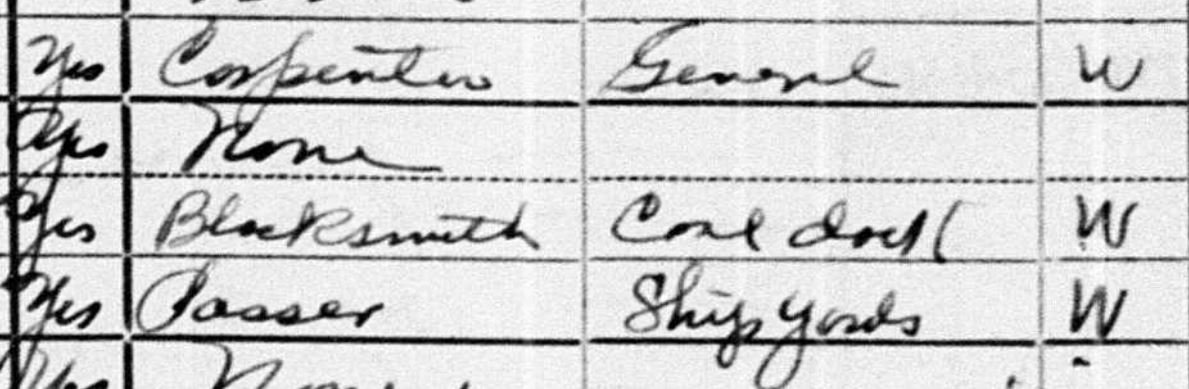 yes Carpenter General W
yes None
yes Blacksmith Coal dock W
yes Passer Ship yards W
yes None